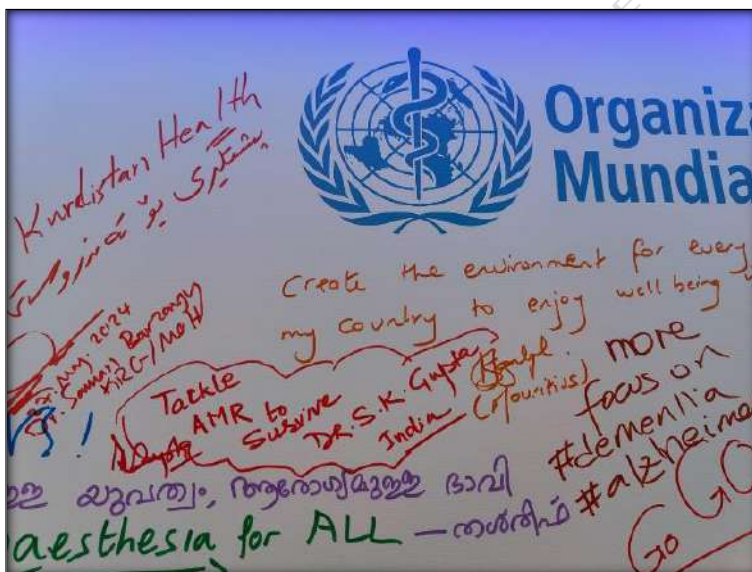 Organiz
Mundia
Kurdistan Health
پشتگیری بۆ تەندروستی
May. 2024
KRG/MOH
Create the environment for every
my country to enjoy well being
(Mauritius)
Tackle
AMR to
Survive
DR. S. K. Gupta
India
more
focus on
#dementia
#alzheime
യുവത്വം, ആരോഗ്യമുള്ള ഭാവി
— തശ്രീഫ്
aesthesia for ALL
Go GO